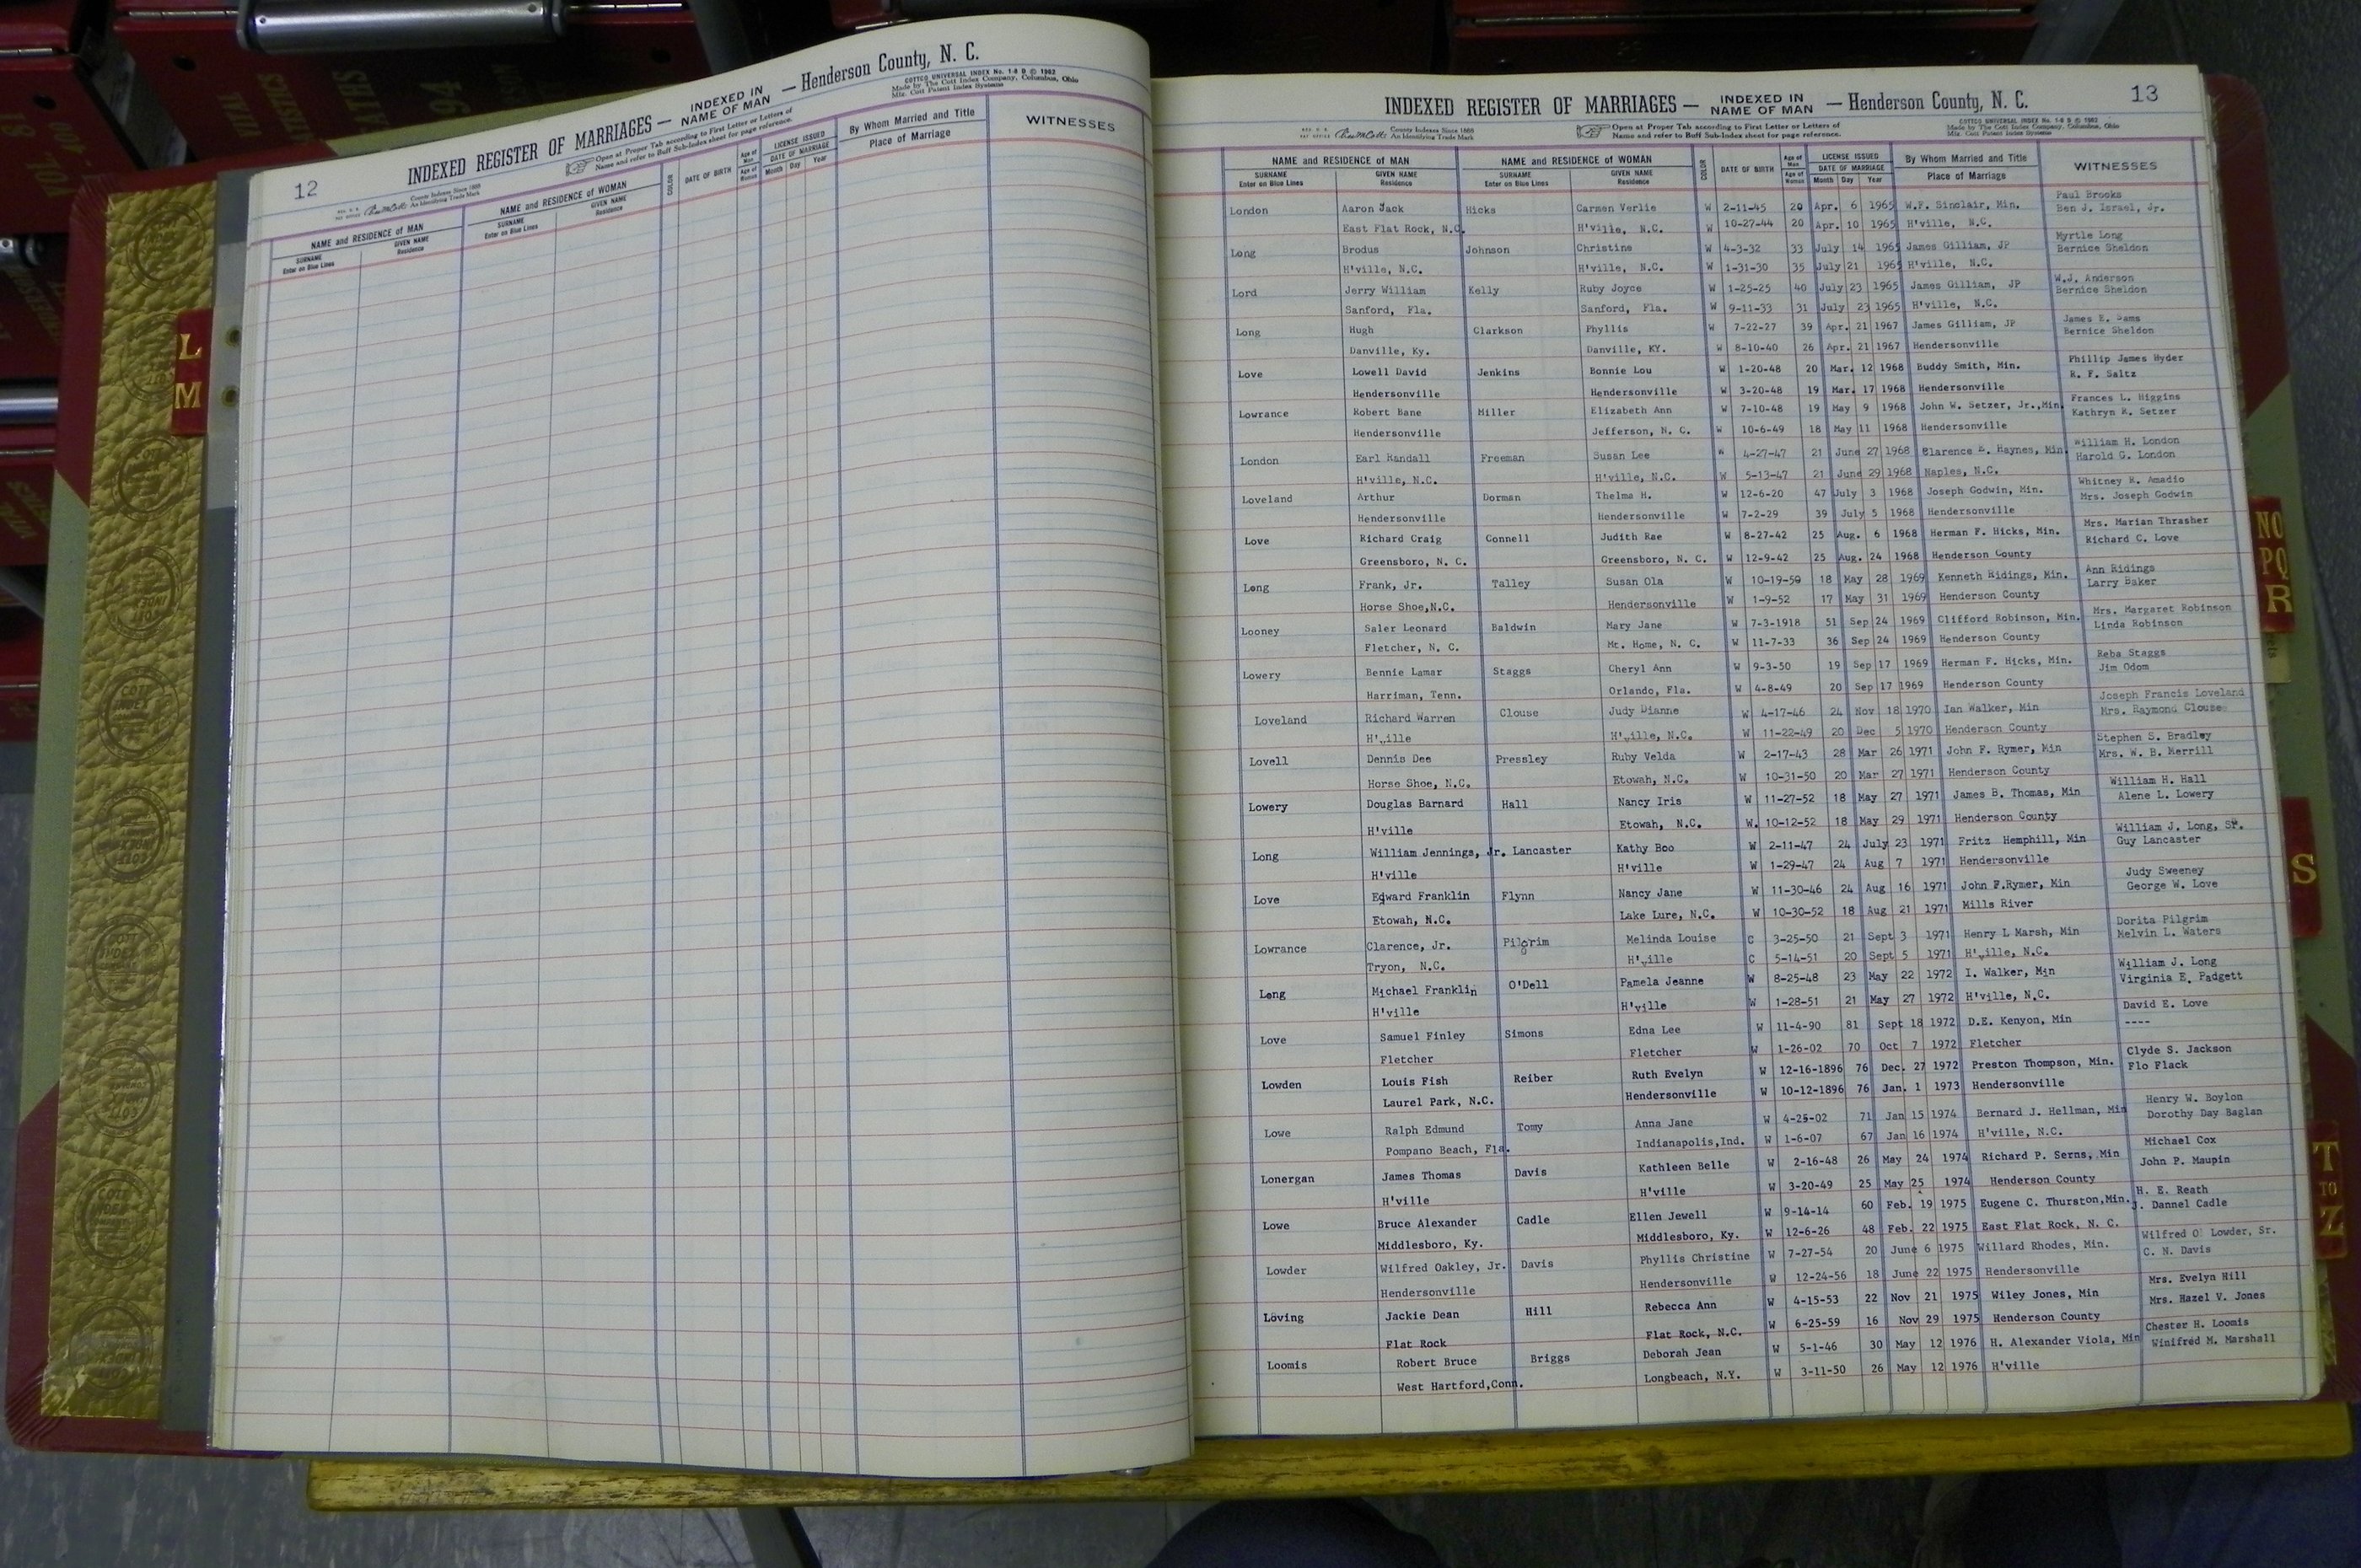 12
INDEXED REGISTER OF MARRIAGES — INDEXED IN NAME OF MAN — Henderson County, N. C.
County Indexes Since 1888
An Identifying Trade Mark
Open at Proper Tab according to First Letter or Letters of
Name and refer to Buff Sub-Index sheet for page reference.
COTTCO UNIVERSAL INDEX No. 1-9 D © 1962
Made by The Cott Index Company, Columbus, Ohio
Mfg. Cott Patent Index Systems
NAME and RESIDENCE OF MAN NAME and RESIDENCE OF WOMAN COLOR DATE OF BIRTH Age of Man LICENSE ISSUED By Whom Married and Title WITNESSES
SURNAME GIVEN NAME SURNAME GIVEN NAME Age of Woman DATE OF MARRIAGE Place of Marriage
Enter on Blue Lines Residence Enter on Blue Lines Residence Month Day Year
L
M
13
INDEXED REGISTER OF MARRIAGES — INDEXED IN NAME OF MAN — Henderson County, N. C.
County Indexes Since 1888
An Identifying Trade Mark
Open at Proper Tab according to First Letter or Letters of
Name and refer to Buff Sub-Index sheet for page reference.
COTTCO UNIVERSAL INDEX No. 1-9 D © 1962
Made by The Cott Index Company, Columbus, Ohio
Mfg. Cott Patent Index Systems
NAME and RESIDENCE OF MAN NAME and RESIDENCE OF WOMAN COLOR DATE OF BIRTH Age of Man LICENSE ISSUED By Whom Married and Title WITNESSES
SURNAME GIVEN NAME SURNAME GIVEN NAME Age of Woman DATE OF MARRIAGE Place of Marriage
Enter on Blue Lines Residence Enter on Blue Lines Residence Month Day Year
Paul Brooks
London Aaron Jack Hicks Carmen Verlie W 2-11-45 20 Apr. 6 1965 W.F. Sinclair, Min. Ben J. Israel, Jr.
East Flat Rock, N.C. H'ville, N.C. W 10-27-44 20 Apr. 10 1965 H'ville, N.C.
Myrtle Long
Long Brodus Johnson Christine W 4-3-32 33 July 14 1965 James Gilliam, JP Bernice Sheldon
H'ville, N.C. H'ville, N.C. W 1-31-30 35 July 21 1965 H'ville, N.C.
W.J. Anderson
Lord Jerry William Kelly Ruby Joyce W 1-25-25 40 July 23 1965 James Gilliam, JP Bernice Sheldon
Sanford, Fla. Sanford, Fla. W 9-11-33 31 July 23 1965 H'ville, N.C.
James E. Sams
Long Hugh Clarkson Phyllis W 7-22-27 39 Apr. 21 1967 James Gilliam, JP Bernice Sheldon
Danville, Ky. Danville, KY. W 8-10-40 26 Apr. 21 1967 Hendersonville
Phillip James Hyder
Love Lowell David Jenkins Bonnie Lou W 1-20-48 20 Mar. 12 1968 Buddy Smith, Min. R. F. Saltz
Hendersonville Hendersonville W 3-20-48 19 Mar. 17 1968 Hendersonville
Frances L. Higgins
Lowrance Robert Bane Miller Elizabeth Ann W 7-10-48 19 May 9 1968 John W. Setzer, Jr.,Min. Kathryn R. Setzer
Hendersonville Jefferson, N. C. W 10-6-49 18 May 11 1968 Hendersonville
William H. London
London Earl Randall Freeman Susan Lee W 4-27-47 21 June 27 1968 Clarence E. Haynes, Min. Harold G. London
H'ville, N.C. H'ville, N.C. W 5-13-47 21 June 29 1968 Naples, N.C.
Whitney R. Amadio
Loveland Arthur Dorman Thelma H. W 12-6-20 47 July 3 1968 Joseph Godwin, Min. Mrs. Joseph Godwin
Hendersonville Hendersonville W 7-2-29 39 July 5 1968 Hendersonville
Mrs. Marian Thrasher
Love Richard Craig Connell Judith Rae W 8-27-42 25 Aug. 6 1968 Herman F. Hicks, Min. Richard C. Love
Greensboro, N. C. Greensboro, N. C. W 12-9-42 25 Aug. 24 1968 Henderson County
Ann Ridings
Long Frank, Jr. Talley Susan Ola W 10-19-50 18 May 28 1969 Kenneth Ridings, Min. Larry Baker
Horse Shoe,N.C. Hendersonville W 1-9-52 17 May 31 1969 Henderson County
Mrs. Margaret Robinson
Looney Saler Leonard Baldwin Mary Jane W 7-3-1918 51 Sep 24 1969 Clifford Robinson, Min. Linda Robinson
Fletcher, N. C. Mt. Home, N. C. W 11-7-33 36 Sep 24 1969 Henderson County
Reba Staggs
Lowery Bennie Lamar Staggs Cheryl Ann W 9-3-50 19 Sep 17 1969 Herman F. Hicks, Min. Jim Odom
Harriman, Tenn. Orlando, Fla. W 4-8-49 20 Sep 17 1969 Henderson County
Joseph Francis Loveland
Loveland Richard Warren Clouse Judy Dianne W 4-17-46 24 Nov 18 1970 Jan Walker, Min Mrs. Raymond Clouse
H'ville H'ville, N.C. W 11-22-49 20 Dec 5 1970 Henderson County
Stephen S. Bradley
Lovell Dennis Dee Pressley Ruby Velda W 2-17-43 28 Mar 26 1971 John F. Rymer, Min Mrs. W. B. Merrill
Horse Shoe, N.C. Etowah, N.C. W 10-31-50 20 Mar 27 1971 Henderson County
William H. Hall
Lowery Douglas Barnard Hall Nancy Iris W 11-27-52 18 May 27 1971 James B. Thomas, Min Alene L. Lowery
H'ville Etowah, N.C. W. 10-12-52 18 May 29 1971 Henderson County
William J. Long, Sr.
Long William Jennings, Jr. Lancaster Kathy Boo W 2-11-47 24 July 23 1971 Fritz Hemphill, Min Guy Lancaster
H'ville H'ville W 1-29-47 24 Aug 7 1971 Hendersonville
Judy Sweeney
Love Edward Franklin Flynn Nancy Jane W 11-30-46 24 Aug 16 1971 John F.Rymer, Min George W. Love
Etowah, N.C. Lake Lure, N.C. W 10-30-52 18 Aug 21 1971 Mills River
Dorita Pilgrim
Lowrance Clarence, Jr. Pilgrim Melinda Louise C 3-25-50 21 Sept 3 1971 Henry L Marsh, Min Melvin L. Waters
Tryon, N.C. H'ville C 5-14-51 20 Sept 5 1971 H'ville, N.C.
William J. Long
Long Michael Franklin O'Dell Pamela Jeanne W 8-25-48 23 May 22 1972 I. Walker, Min Virginia E. Padgett
H'ville H'ville W 1-28-51 21 May 27 1972 H'ville, N.C.
David E. Love
Love Samuel Finley Simons Edna Lee W 11-4-90 81 Sept 18 1972 D.E. Kenyon, Min ----
Fletcher Fletcher W 1-26-02 70 Oct 7 1972 Fletcher
Clyde S. Jackson
Lowden Louis Fish Reiber Ruth Evelyn W 12-16-1896 76 Dec. 27 1972 Preston Thompson, Min. Flo Flack
Laurel Park, N.C. Hendersonville W 10-12-1896 76 Jan. 1 1973 Hendersonville
Henry W. Boylon
Lowe Ralph Edmund Tomy Anna Jane W 4-25-02 71 Jan 15 1974 Bernard J. Hellman, Min Dorothy Day Baglan
Pompano Beach, Fla. Indianapolis,Ind. W 1-6-07 67 Jan 16 1974 H'ville, N.C.
Michael Cox
Lonergan James Thomas Davis Kathleen Belle W 2-16-48 26 May 24 1974 Richard P. Serns, Min John P. Maupin
H'ville H'ville W 3-20-49 25 May 25 1974 Henderson County
H. E. Reath
Lowe Bruce Alexander Cadle Ellen Jewell W 9-14-14 60 Feb. 19 1975 Eugene C. Thurston,Min. J. Dannel Cadle
Middlesboro, Ky. Middlesboro, Ky. W 12-6-26 48 Feb. 22 1975 East Flat Rock, N. C.
Wilfred O. Lowder, Sr.
Lowder Wilfred Oakley, Jr. Davis Phyllis Christine W 7-27-54 20 June 6 1975 Willard Rhodes, Min. C. N. Davis
Hendersonville Hendersonville W 12-24-56 18 June 22 1975 Hendersonville
Mrs. Evelyn Hill
Loving Jackie Dean Hill Rebecca Ann W 4-15-53 22 Nov 21 1975 Wiley Jones, Min Mrs. Hazel V. Jones
Flat Rock Flat Rock, N.C. W 6-25-59 16 Nov 29 1975 Henderson County
Chester H. Loomis
Loomis Robert Bruce Briggs Deborah Jean W 5-1-46 30 May 12 1976 H. Alexander Viola, Min Winifred M. Marshall
West Hartford,Conn. Longbeach, N.Y. W 3-11-50 26 May 12 1976 H'ville
NO
PQ
R
S
T
TO
Z